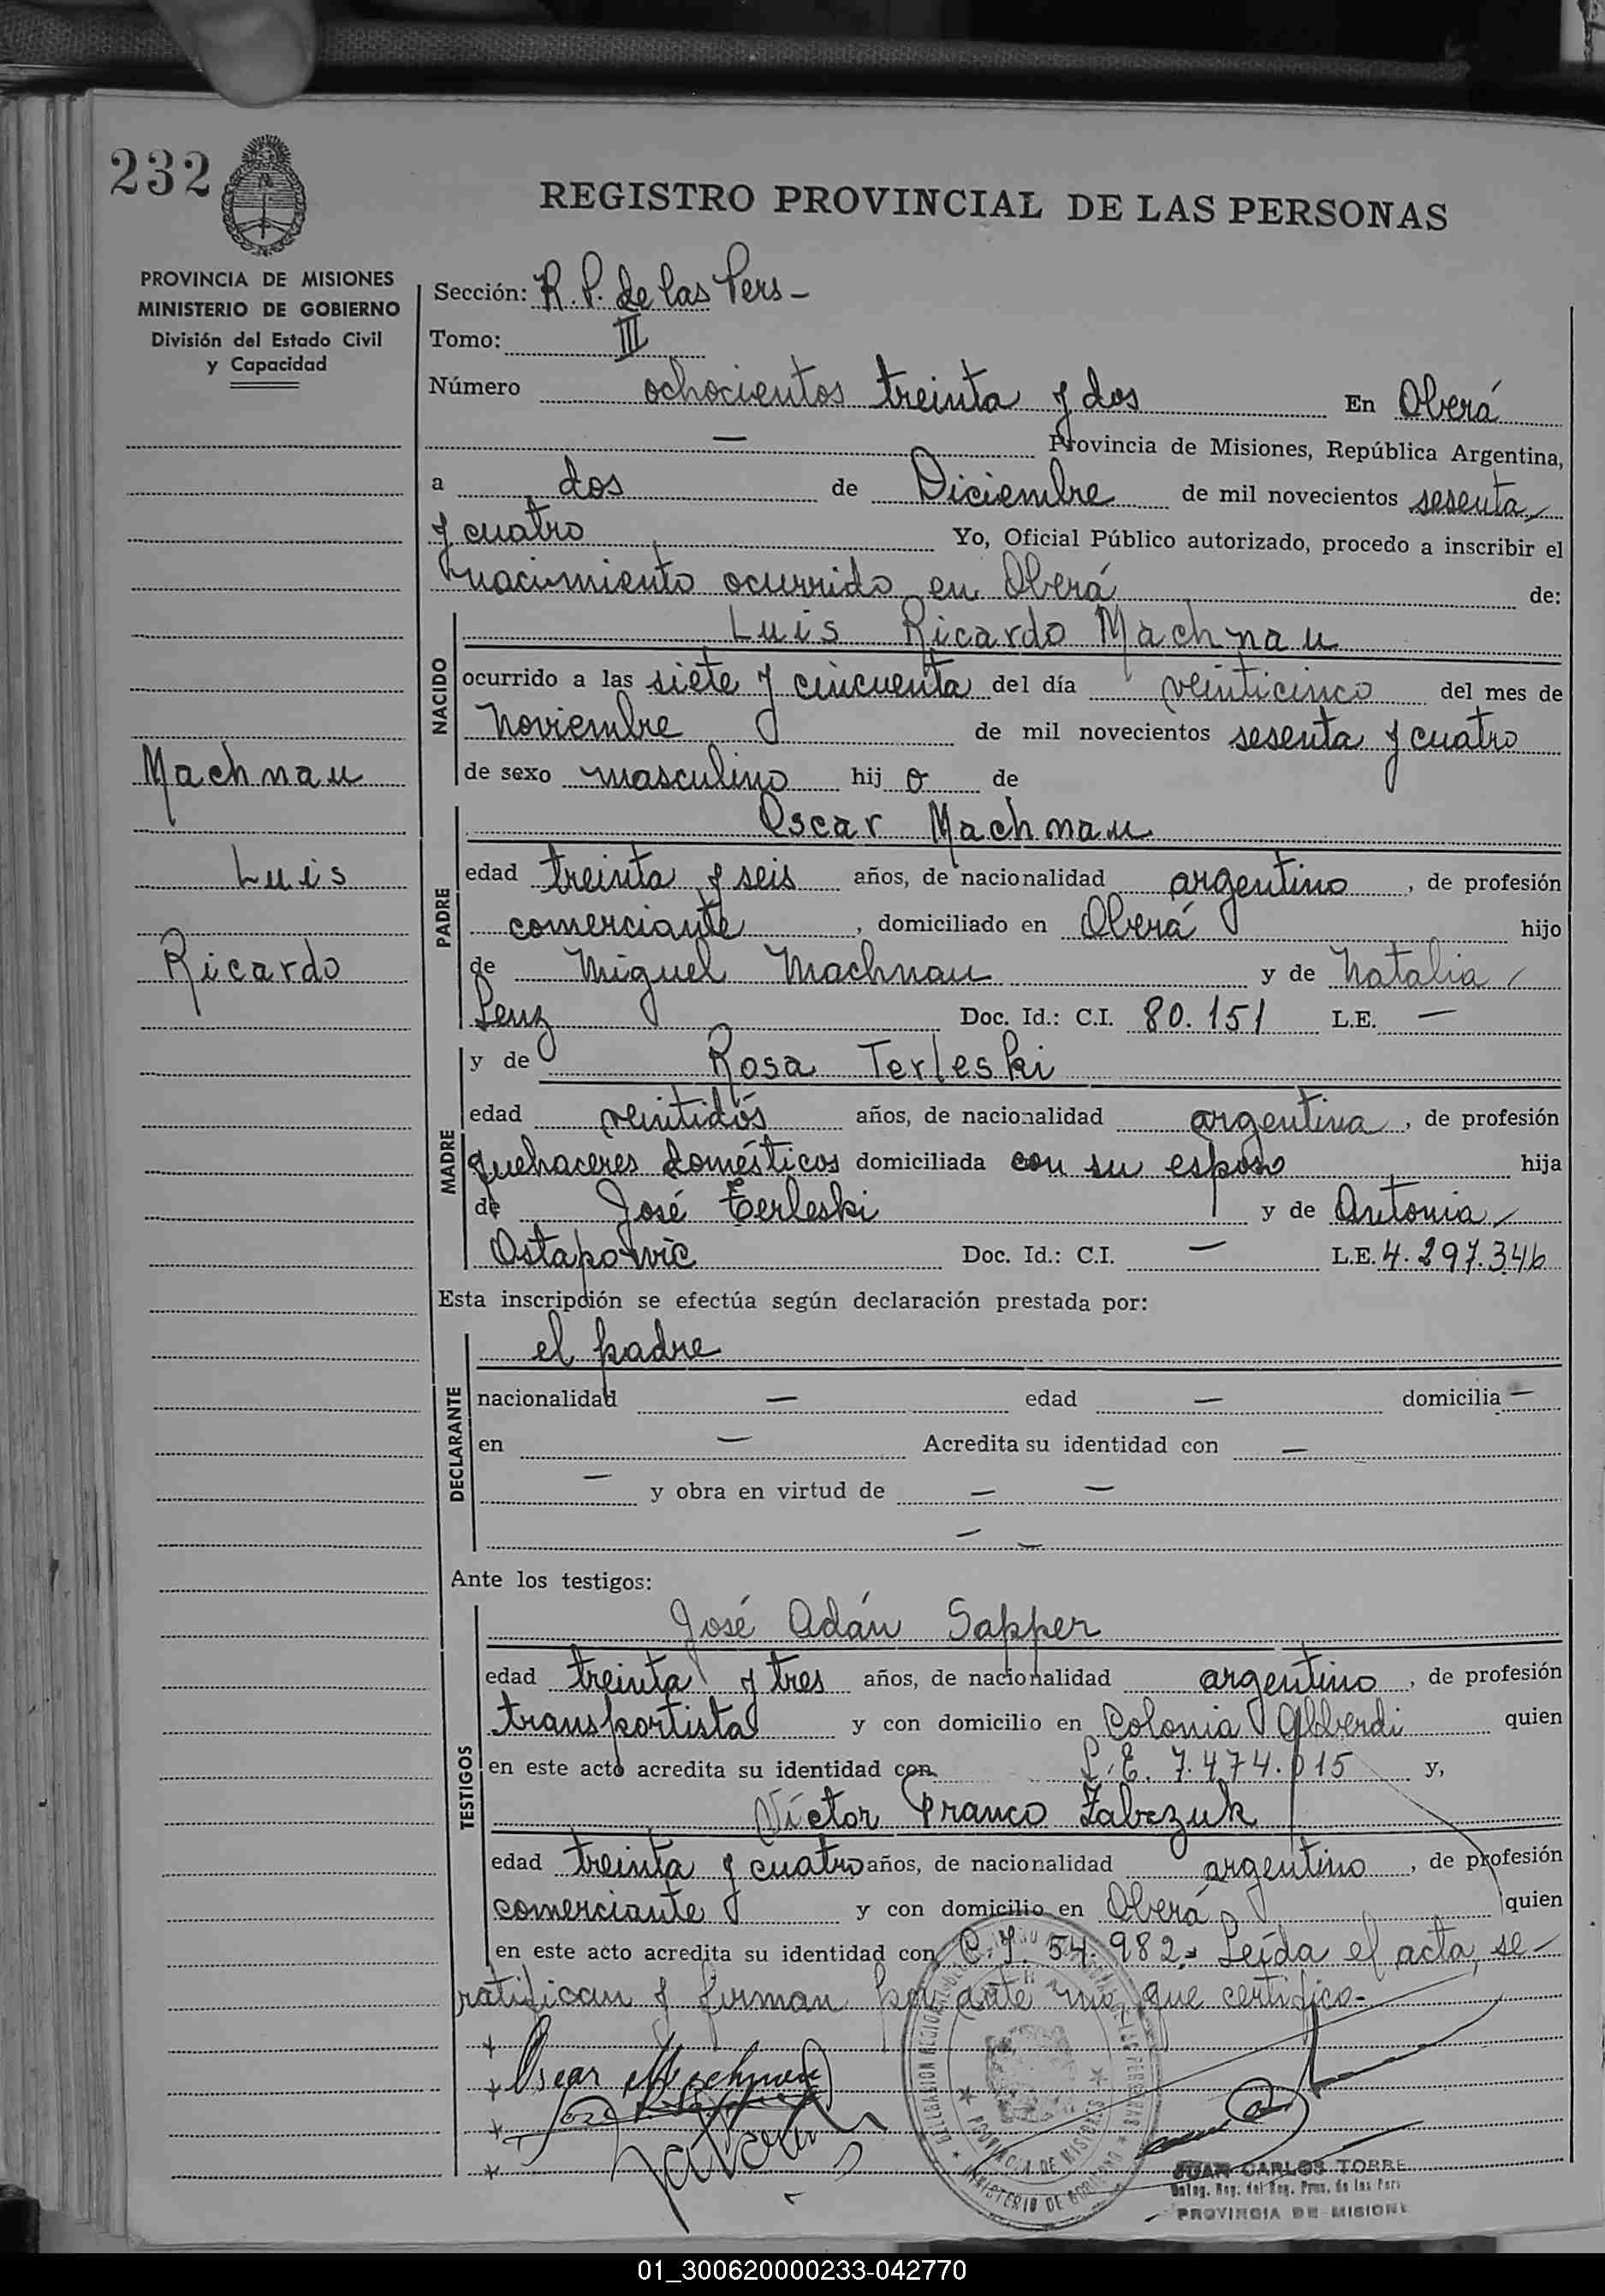 232
REGISTRO PROVINCIAL DE LAS PERSONAS
PROVINCIA DE MISIONES
MINISTERIO DE GOBIERNO
División del Estado Civil
y Capacidad
Sección: R. P. de las Pers -
Tomo: III
Número ochocientos treinta y dos En Oberá
— Provincia de Misiones, República Argentina,
a dos de Diciembre de mil novecientos sesenta
y cuatro Yo, Oficial Público autorizado, procedo a inscribir el
nacimiento ocurrido en Oberá de:
NACIDO
Luis Ricardo Machnau
ocurrido a las siete y cincuenta del día veinticinco del mes de
Noviembre de mil novecientos sesenta y cuatro
de sexo masculino hij o de
Machnau
Luis
Ricardo
PADRE
Oscar Machnau
edad treinta y seis años, de nacionalidad argentino, de profesión
comerciante, domiciliado en Oberá hijo
de Miguel Machnau y de Natalia
Lenz Doc. Id.: C.I. 80.151 L.E. —
MADRE
y de Rosa Terleski
edad veintidós años, de nacionalidad argentina, de profesión
quehaceres domésticos domiciliada con su esposo hija
de José Terleski y de Antonia
Ostapowic Doc. Id.: C.I. — L.E. 4.297.346
Esta inscripción se efectúa según declaración prestada por:
DECLARANTE
el padre
nacionalidad — edad — domicilia —
en — Acredita su identidad con —
— y obra en virtud de — —
— —
Ante los testigos:
TESTIGOS
José Adán Sapper
edad treinta y tres años, de nacionalidad argentino, de profesión
transportista y con domicilio en Colonia Alberdi quien
en este acto acredita su identidad con L.E. 7.474.015 y,
Víctor Franco Zabczuk
edad treinta y cuatro años, de nacionalidad argentino, de profesión
comerciante y con domicilio en Oberá quien
en este acto acredita su identidad con C.I. 54.982.- Leída el acta, se
ratifican y firman por ante mí, que certifico.-
Oscar Machnau
PROVINCIA DE MISIONES
MINISTERIO DE GOBIERNO
JUAN CARLOS TORRE
Deleg. Reg. del Reg. Prov. de las Pers
PROVINCIA DE MISIONE
01_300620000233-042770